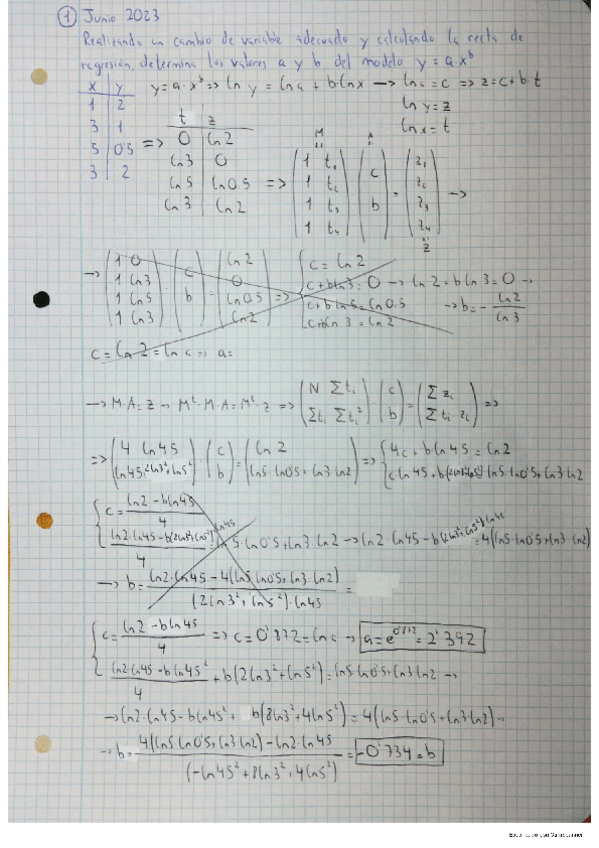 1 Junio 2023
Realizando un cambio de variable adecuado y calculando la recta de
regresión, determina los valores a y b del modelo y = a·x^b
x | y
1 | 2
3 | 1
5 | 0'5
3 | 2
y = a·x^b => ln y = ln a + b·ln x → ln a = c => z = c + b·t
ln y = z
ln x = t
=> t | z
0 | ln 2
ln 3 | 0
ln 5 | ln 0.5
ln 3 | ln 2
=> M A
(1 t₁; 1 t₂; 1 t₃; 1 t₄) · (c; b) = (z₁; z₂; z₃; z₄) →
z
→ (1 0; 1 ln3; 1 ln5; 1 ln3) · (c; b) = (ln 2; 0; ln 0.5; ln 2) => { c = ln 2
c + b ln 3 = 0 → ln 2 + b ln 3 = 0 →
c + b ln 5 = ln 0.5 → b = - ln 2 / ln 3
c + b ln 3 = ln 2
c = ln 2 = ln a => a =
→ M·A = z → Mᵗ·M·A = Mᵗ·z => (N Σtᵢ; Σtᵢ Σtᵢ²) · (c; b) = (Σzᵢ; Σtᵢ·zᵢ) =>
=> (4 ln 45; ln 45 2ln3²+ln5²) · (c; b) = (ln 2; ln5·ln0'5 + ln3·ln2) => { 4c + b ln 45 = ln 2
c ln 45 + b(2ln3²+ln5²) = ln5·ln0'5 + ln3·ln2
{ c = (ln 2 - b ln 45) / 4
ln5·ln0'5 + ln3·ln2 → ln2·ln45 - b(2ln3²+ln5²)·ln45 = 4(ln5·ln0'5 + ln3·ln2)
→ b = (ln2·ln45 - 4(ln5·ln0'5 + ln3·ln2)) / ((2ln3²+ln5²)·ln45) =
{ c = (ln2 - b ln45) / 4 => c = 0'872 = ln a → a = e^0'872 = 2'392
(ln2·ln45 - b ln45²) / 4 + b(2ln3² + ln5²) = ln5·ln0'5 + ln3·ln2 →
→ ln2·ln45 - b ln45² + b(8ln3² + 4ln5²) = 4(ln5·ln0'5 + ln3·ln2) →
→ b = (4(ln5·ln0'5 + ln3·ln2) - ln2·ln45) / (-ln45² + 8ln3² + 4ln5²) = -0'734 = b